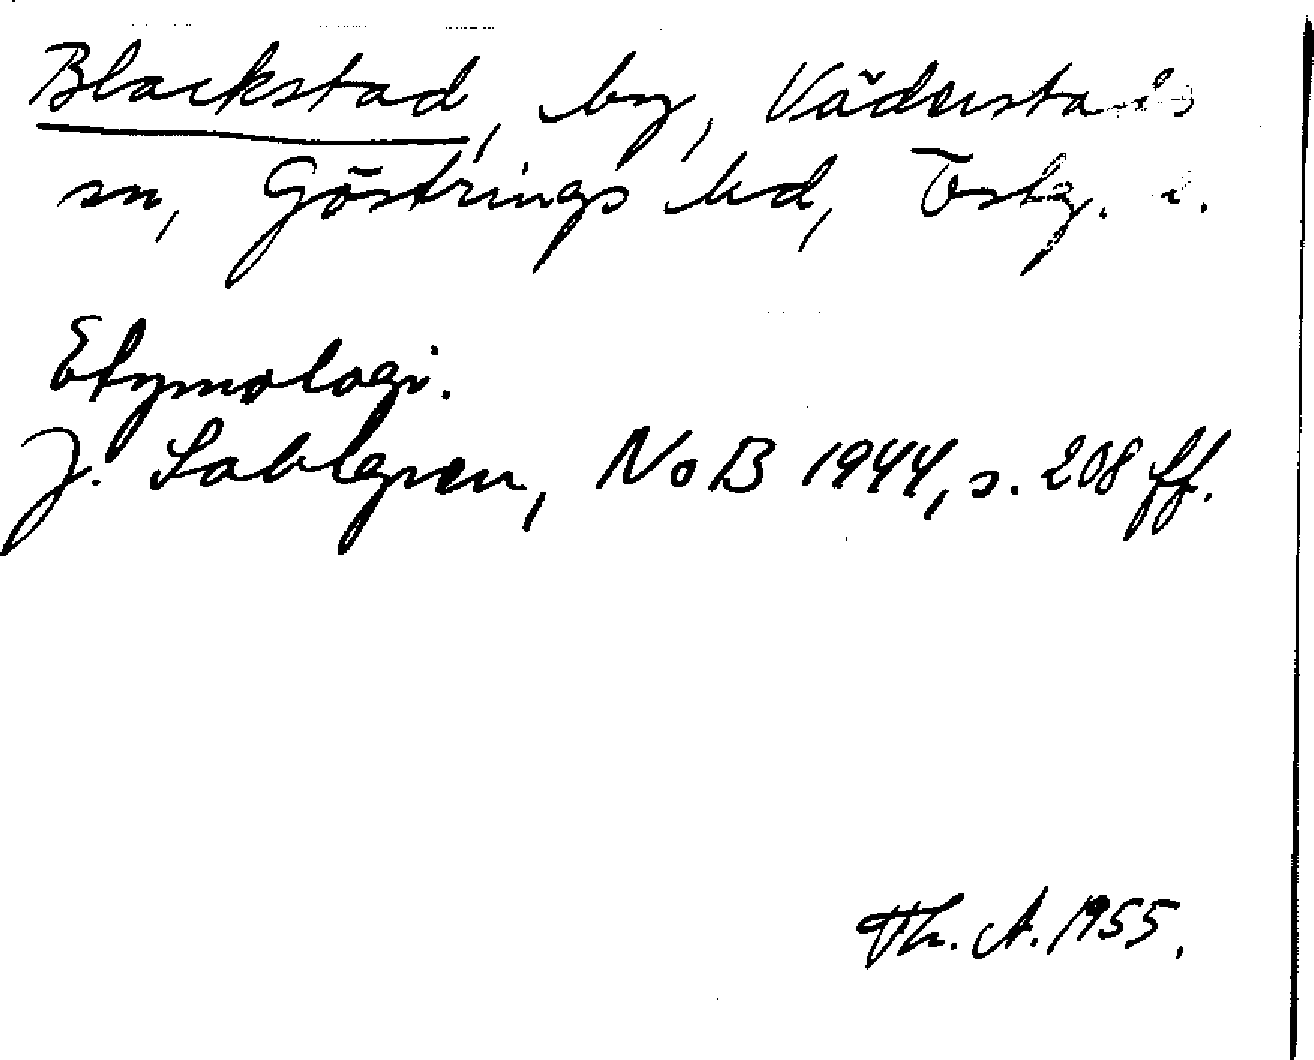 Blackstad, by, Väderstads
sn, Göstrings hd, Östg. l.
Etymologi.
J. Sahlgren, NoB 1944, s. 208 ff.
Th. A. 1955.